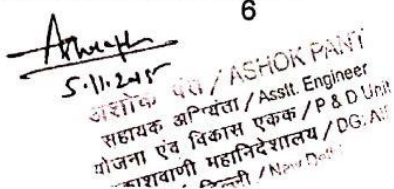 6
5.11.2015
अशोक पंत / ASHOK PANT
सहायक अभियंता / Asstt. Engineer
योजना एवं विकास एकक / P & D Unit
आकाशवाणी महानिदेशालय / DG: AIR
दिल्ली / New Delhi